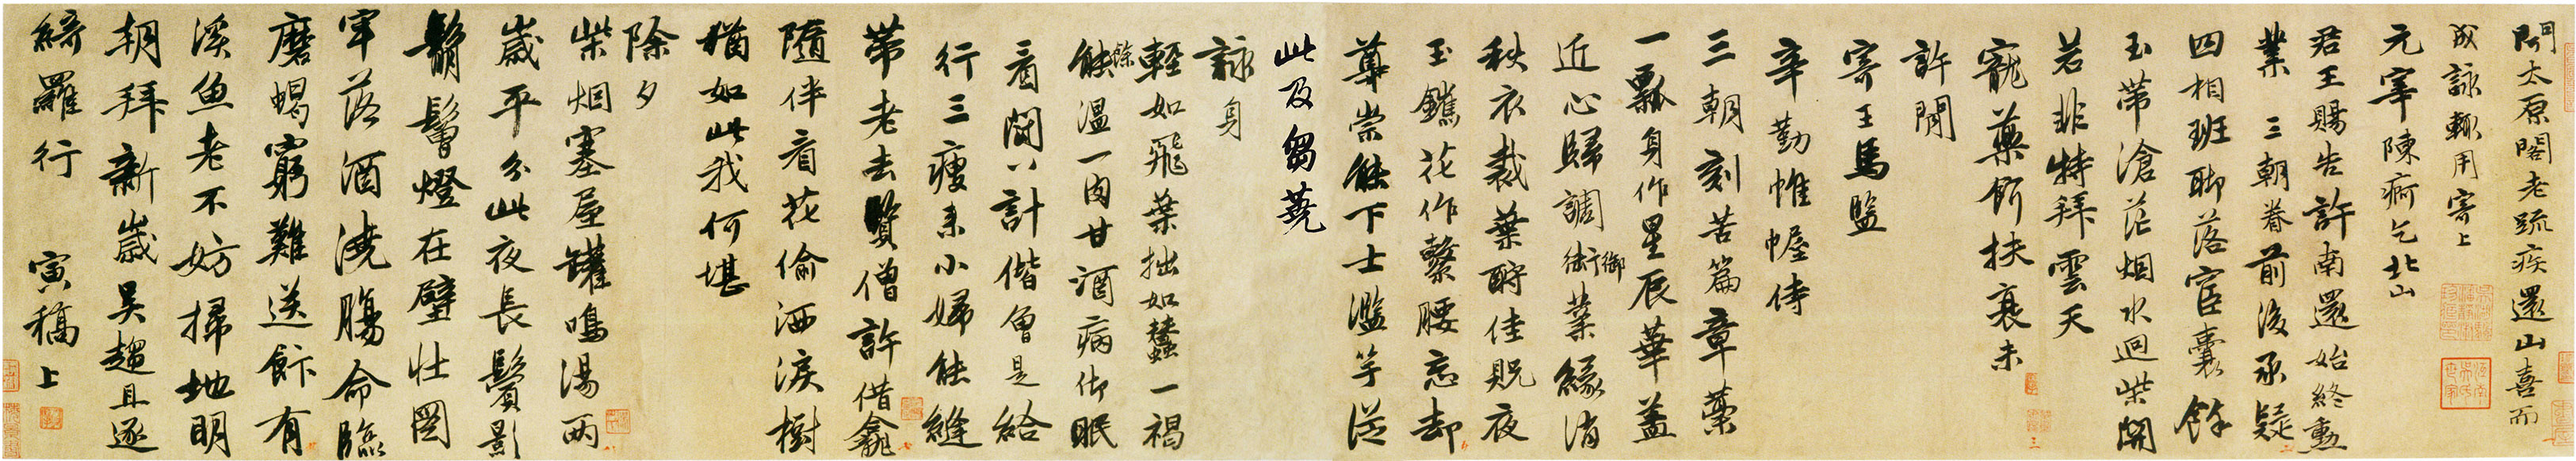 聞太原閣老疏疾還山喜而
成詠輒用寄上
元宰陳痾乞北山
君王賜告許南還始終勳
業三朝眷前後承疑
四相班聊落宦囊餘
玉帶滄茫烟水迥柴關
若非特拜雲天
寵藥餌扶衰未
許閒
寄王馬監
辛勤帷幄侍
三朝刻苦篇章藁
一瓢身作星辰華蓋
近心歸調御葉緣消
秋衣裁葉酧佳貺夜
玉鑴花作繫腰忘却
尊崇能下士濫竽從
此及芻蕘
詠身
輕如飛葉拙如蠶一褐
餘溫一肉甘酒病御眠
看閱八計偕曾是給
行三瘦妻小婦能縫
帶老去贒僧許借龕
隨伴看花偷洒淚樹
猶如此我何堪
除夕
柴烟塞屋罐鳴湯兩
歲平分此夜長鬢影
鬅鬙燈在壁壯圖
牢落酒澆腸命臨
磨蝎窮難送飰有
溪魚老不妨掃地明
朝拜新歲吳趨且逐
綺羅行 寅稿上